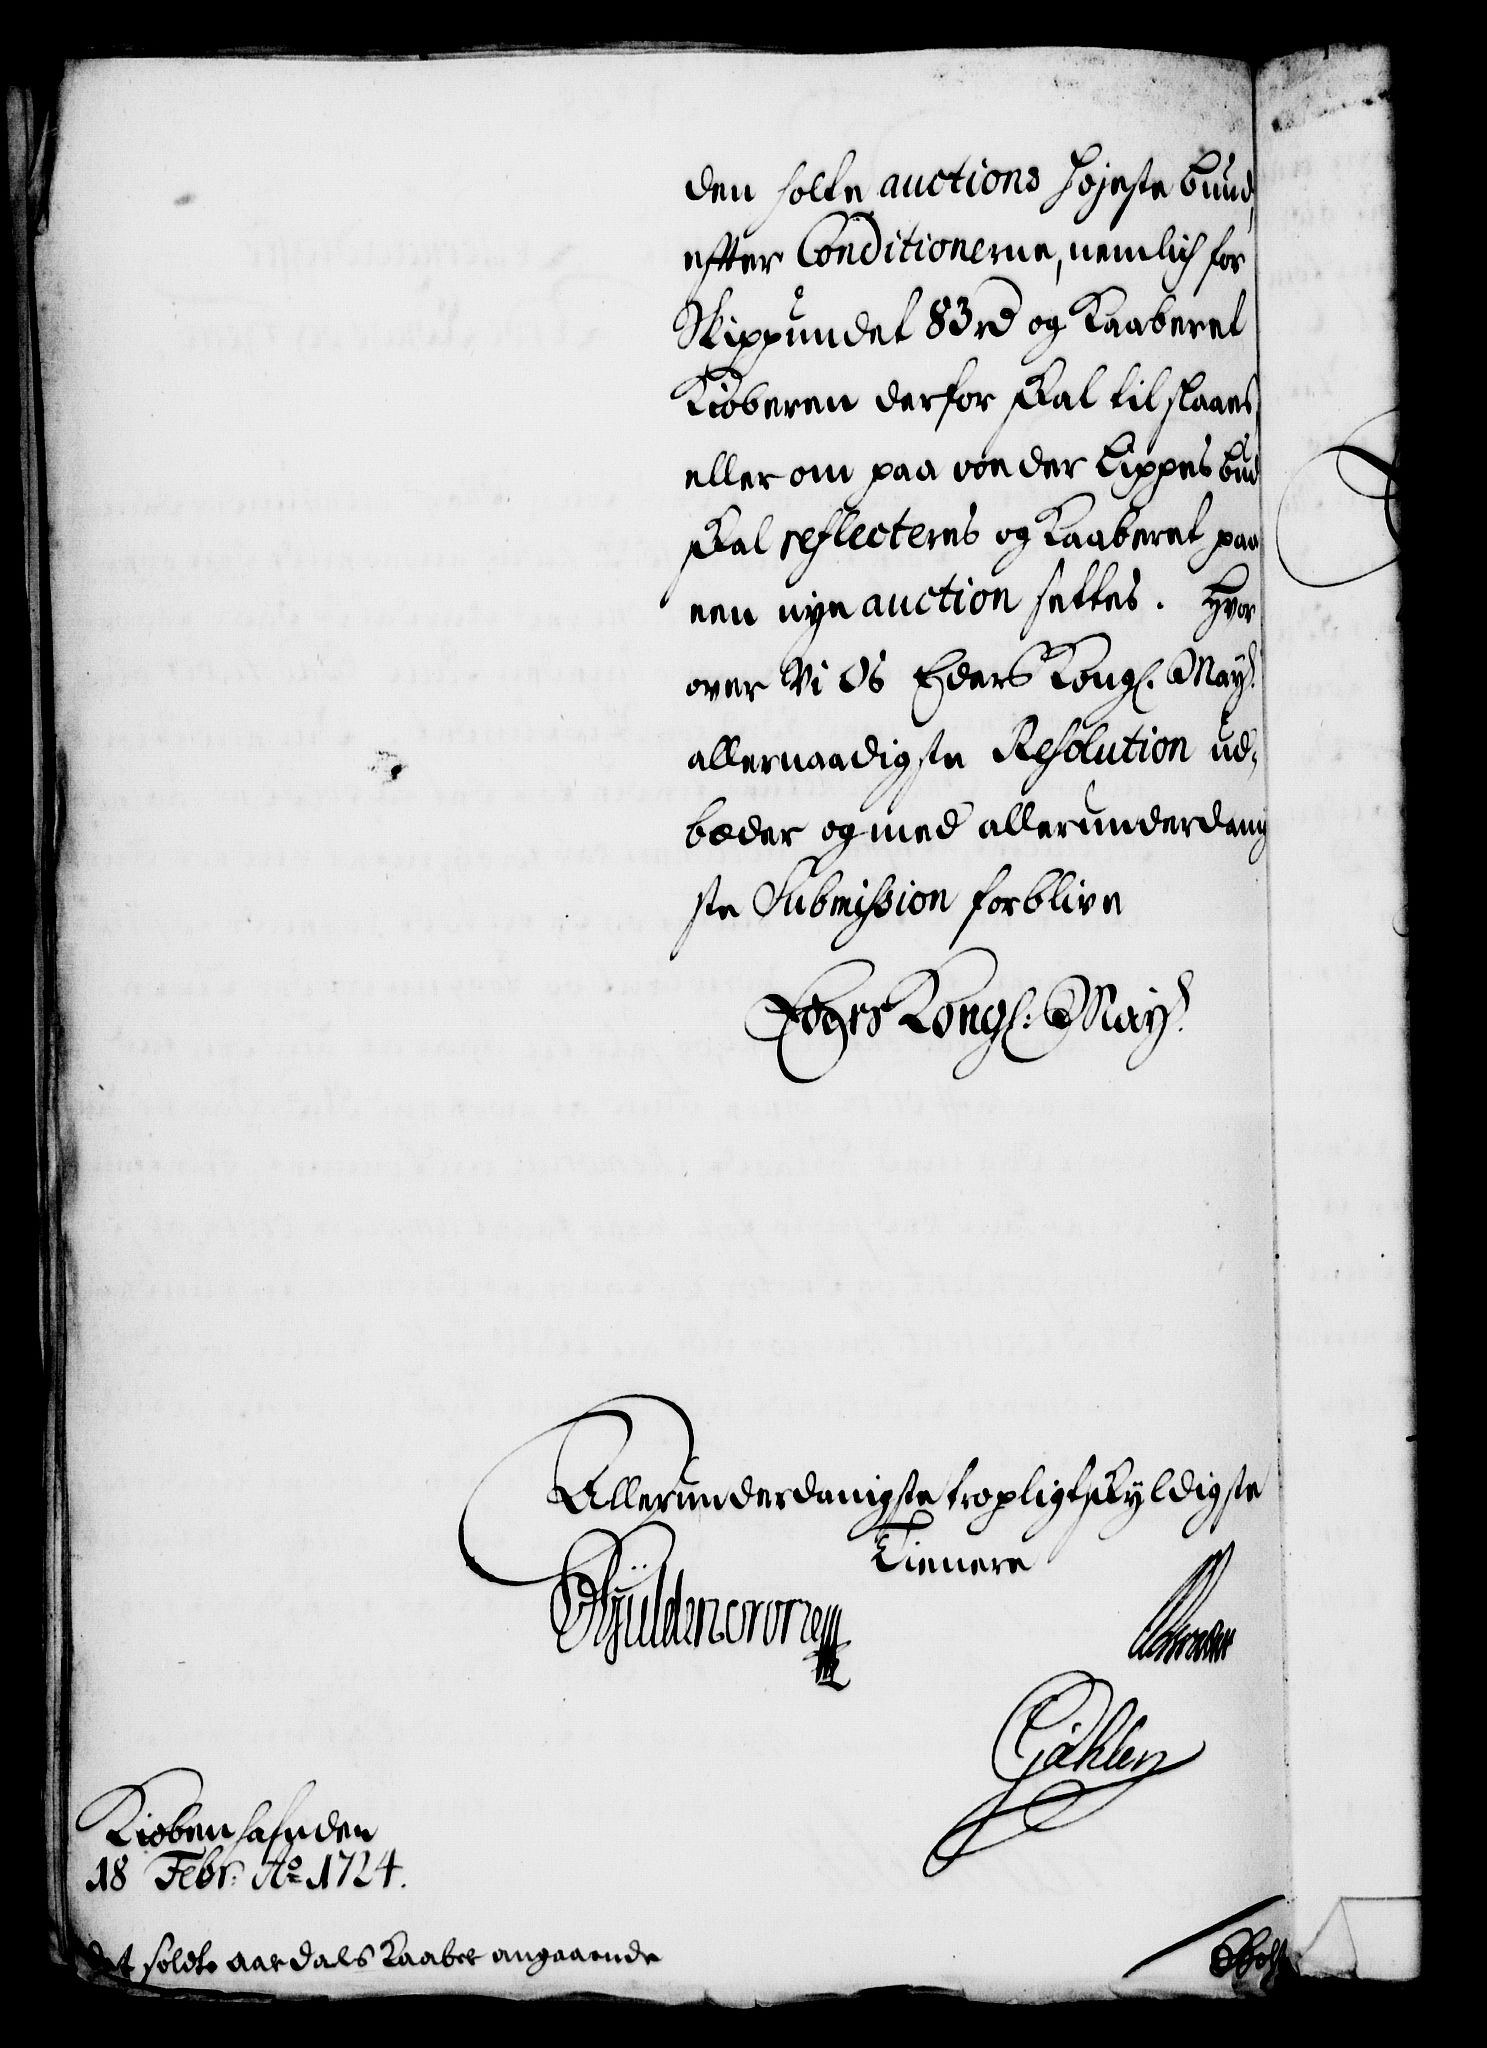 den holte auctions højeste bund,
efter Conditionerne, nemlich for
Skippundet 83 rd og Kaaberet
Kiøberen derfor skal tilslaaes,
eller om paa von der Lippes bud
skal reflecteres og Kaaberet paa
een nye auction settes. Hvor
over Vi Os Eders Kongl. May.
allernaadigste Resolution ud,
beder og med allerunderdanig
ste Submission forblive
Eders Kongl: May.
Allerunderdanigste troepligtskyldigste
Tienere
Gÿldencrone
Gähler
Kiøbenhafn den
18 Febr: Ao 1724.
det soldte aardals Kaaber angaaende